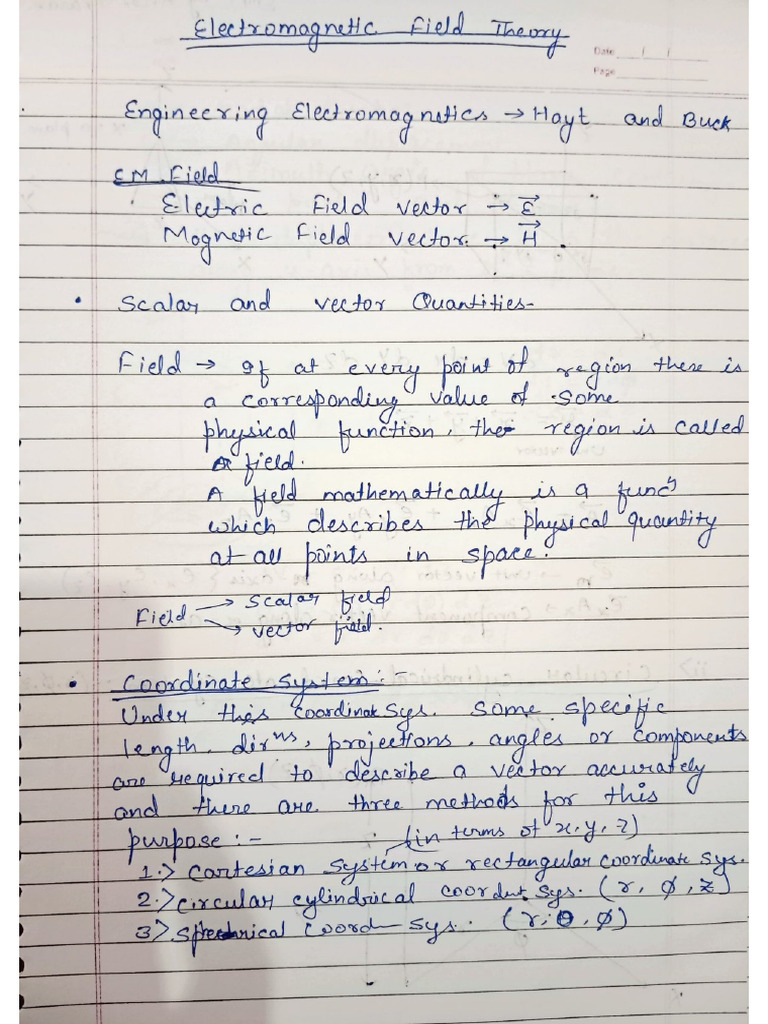 Electromagnetic Field Theory
Date / /
Page
Engineering Electromagnetics → Hayt and Buck
EM Field
Electric Field vector → E⃗
Magnetic Field vector. → H⃗
• Scalar and vector Quantities-
Field → If at every point of region there is
a corresponding value of some
physical function, the region is called
a field.
A field mathematically is a funcⁿ
which describes the physical quantity
at all points in space.
Field → Scalar field
→ vector field.
• Coordinate System:-
Under this coordinate sys. some specific
length, dirⁿˢ, projections, angles or components
are required to describe a vector accurately
and there are three methods for this
purpose :- (in terms of x, y, z)
1.> Cartesian System or rectangular coordinate sys.
2.> Circular cylindrical coordnt sys. (r, ø, z)
3> Spherical Coord sys. (r, θ, ø)